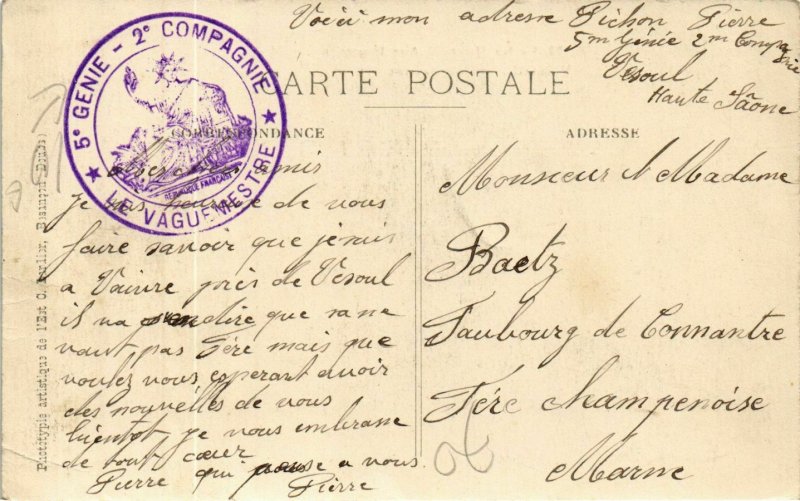 Voici mon adresse Pichon Pierre
5m Génie 2m Compagnie
Vesoul
Haute Sâone
CARTE POSTALE
CORRESPONDANCE
ADRESSE
5e GENIE - 2e COMPAGNIE
REPUBLIQUE FRANÇAISE
LE VAGUEMESTRE
amis
je de vous
faire savoir que je suis
a Vaivre près de Vesoul
il na dire que sa ne
vaut pas Fère mais que
voulez vous esperant avoir
des nouvelles de vous
bientot je vous embrasse
de tout cœur
Pierre qui pense a vous
Pierre
Monsieur et Madame
Baetz
Faubourg de Connantre
Fére Champenoise
Marne
Phototypie artistique de l'Est C. Lardier, Besançon (Doubs)